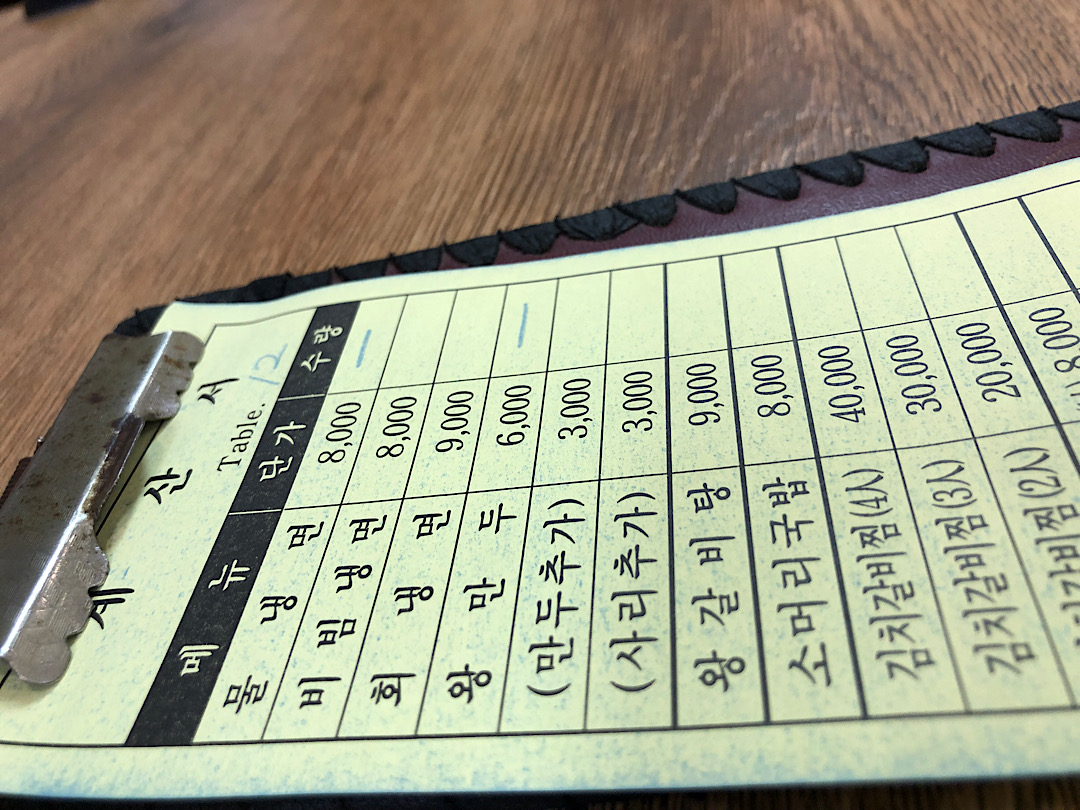 계 산 서
Table. 12
메 뉴 단 가 수 량
물 냉 면 8,000 一
비 빔 냉 면 8,000
회 냉 면 9,000
왕 만 두 6,000 一
(만두추가) 3,000
(사리추가) 3,000
왕 갈 비 탕 9,000
소머리국밥 8,000
김치갈비찜(4人) 40,000
김치갈비찜(3人) 30,000
김치갈비찜(2人) 20,000